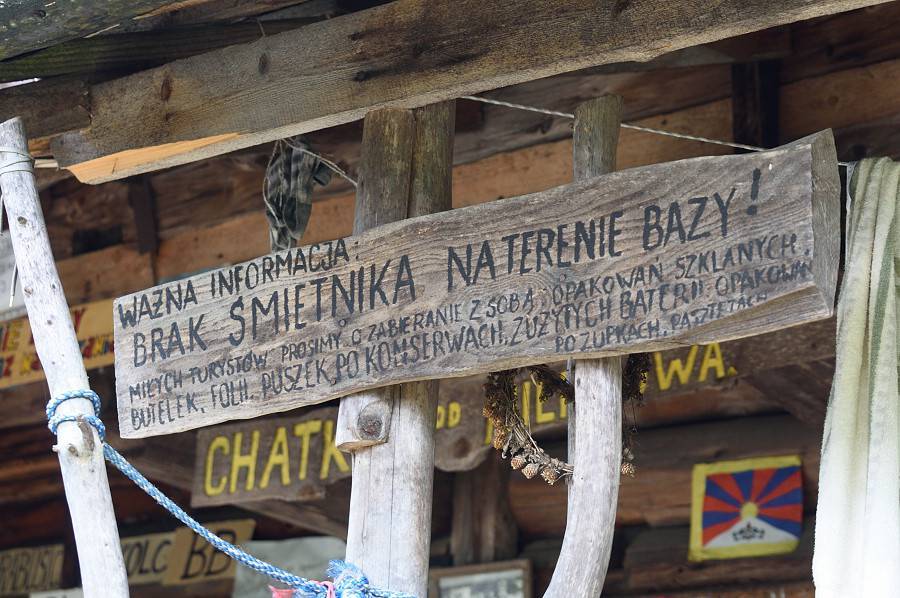 WAŻNA INFORMACJA:
BRAK ŚMIETNIKA NA TERENIE BAZY!
MIŁYCH TURYSTÓW PROSIMY O ZABIERANIE Z SOBĄ: OPAKOWAN SZKLANYCH,
BUTELEK, FOLII, PUSZEK, PO KONSERWACH, ZUŻYTYCH BATERII OPAKOWAŃ
PO ZUPKACH, PASZTETACH
CHATK
OD
WA.
BB